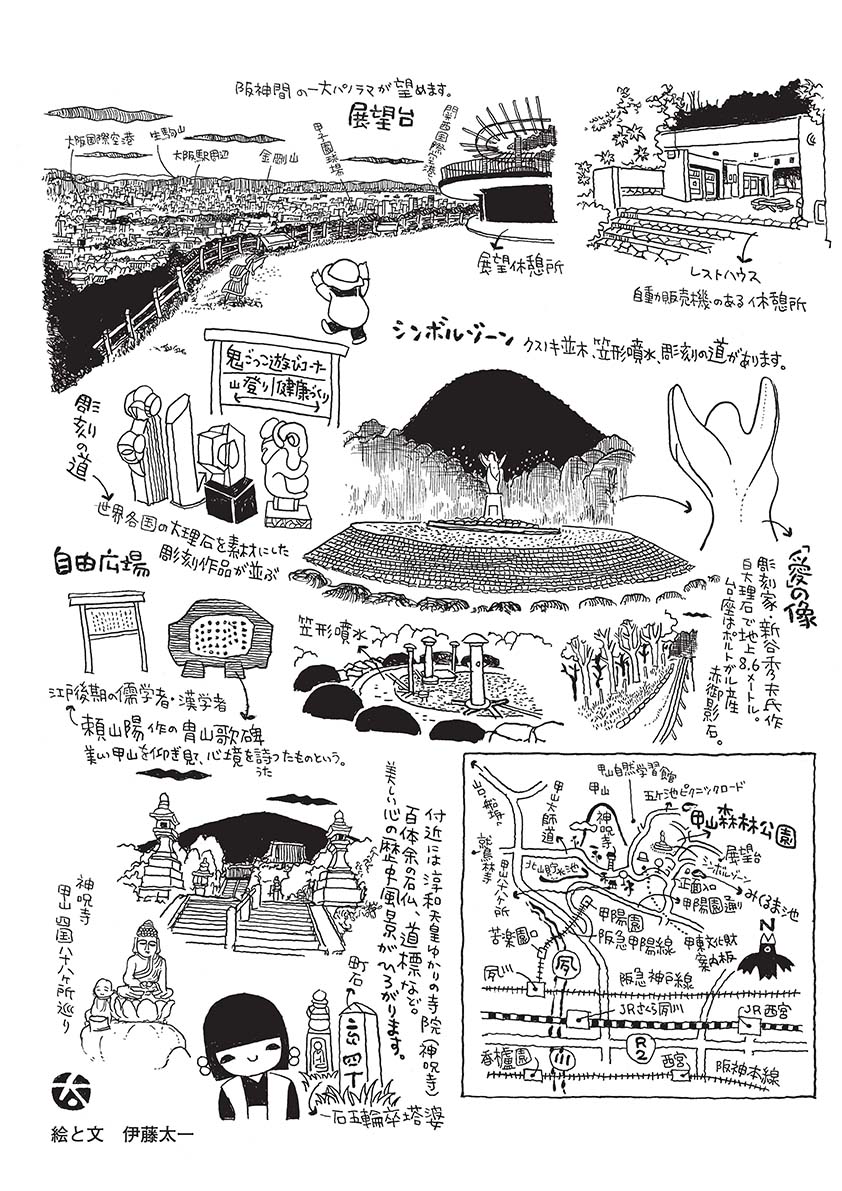 阪神間の一大パノラマが望めます。
展望台
大阪国際空港
生駒山
大阪駅周辺
金剛山
甲子園球場
関西国際空港
展望休憩所
レストハウス
自動販売機のある休憩所
シンボルゾーン
クスノキ並木、笠形噴水、彫刻の道があります。
鬼ごっこ遊びコーナー
山登り
健康づくり
彫刻の道
世界各国の大理石を素材にした
彫刻作品が並ぶ
「愛の像」
彫刻家・新谷秀夫氏作
白大理石で地上6.8メートル。
台座はポルトガル産
赤御影石。
自由広場
笠形噴水
江戸後期の儒学者・漢学者
頼山陽作の冑山歌碑
美しい甲山を仰ぎ見て、心境を詩ったものという。
うた
付近には淳和天皇ゆかりの寺院(神呪寺)
百体余の石仏、道標など。
美しい心の歴史風景がひろがります。
神呪寺
甲山四国八十八ヶ所巡り
町石
一石五輪卒塔婆
甲山自然学習館
甲山
五ヶ池ピクニックロード
甲山森林公園
甲山大師道
神呪寺
展望台
シンボルゾーン
正面入口
みくるま池
鷲林寺
北山貯水池
甲山八十八ヶ所
甲陽園通り
甲陽園
苦楽園口
阪急甲陽線
甲東文化財案内板
N
夙川
夙
阪急神戸線
JRさくら夙川
JR西宮
香櫨園
川
R2
西宮
阪神本線
太
絵と文 伊藤太一